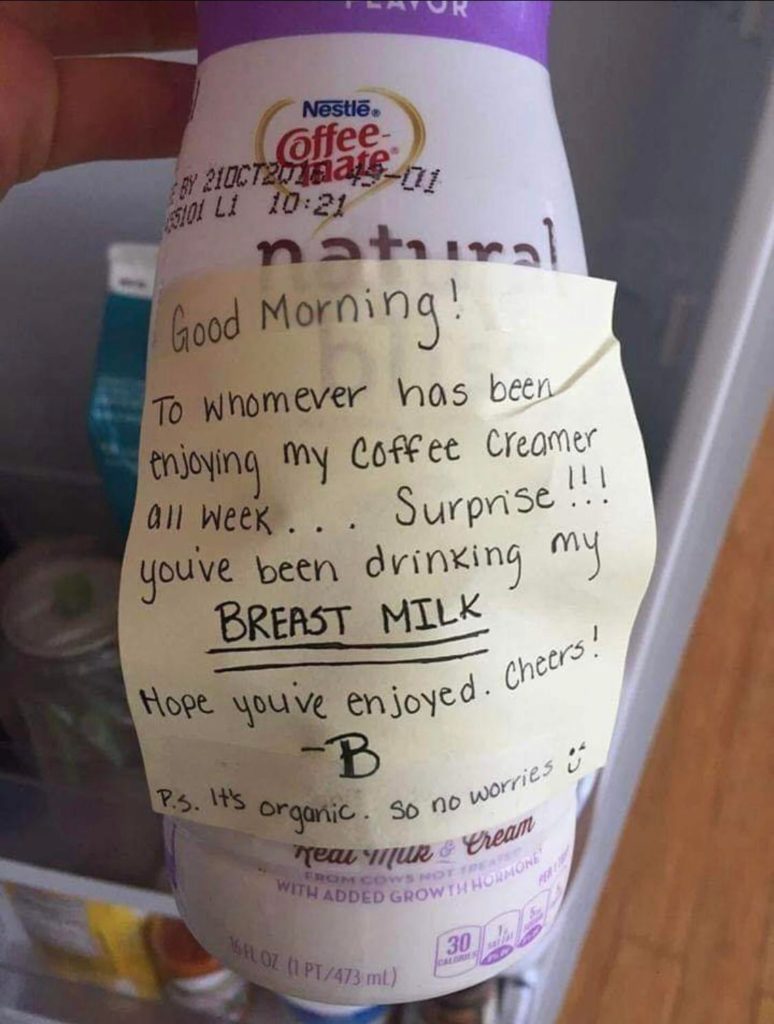 FLAVOR
Nestlé®
Coffee-
mate®
BY 21OCT2016 49-01
55101 L1 10:21
natural
bliss
Good Morning!
To whomever has been
enjoying my coffee creamer
all week . . . Surprise!!!
you've been drinking my
BREAST MILK
Hope you've enjoyed. Cheers!
-B
P.s. It's organic. So no worries :)
Real Milk & Cream
FROM COWS NOT TREATED
WITH ADDED GROWTH HORMONE
16 FL OZ (1 PT/473 mL)
30
CALORIES